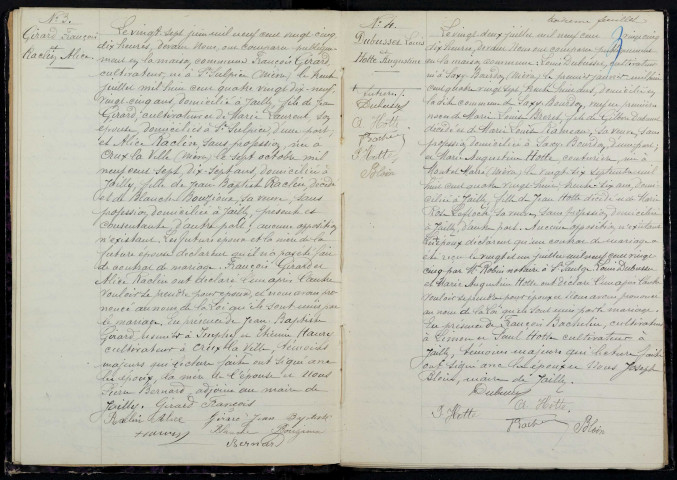 N° 3.
Girard François
et
Raclin Alice
Le vingt sept juin mil neuf cent vingt cinq
dix heures, devant Nous ont comparu publique-
ment en la maison commune François Girard,
cultivateur, né à St Sulpice (Nièvre) le huit
juillet mil huit cent quatre vingt dix neuf,
vingt cinq ans, domicilié à Jailly, fils de Jean
Girard, cultivateur et de Marie Laurent, son
épouse, domiciliés à St Sulpice, d'une part,
et Alice Raclin sans profession, née à
Crux la Ville (Nièvre) le sept octobre mil
neuf cent sept, dix-sept ans, domiciliée à
Jailly, fille de Jean Baptiste Raclin, décédé
et de Blanche Bougione, sa mère, sans
profession, domiciliée à Jailly, présente et
consentante d'autre part; aucune opposition
n'existant. Les futurs époux et la mère de la
future épouse déclarent qu'il n'a pas été fait
de contrat de mariage. François Girard et
Alice Raclin ont déclaré l'un après l'autre
vouloir se prendre pour époux, et nous avons pro-
noncé au nom de la Loi qu'ils sont unis par
le mariage. En présence de Jean Baptiste
Girard, à et Etienne
cultivateur à Crux la Ville, témoins
majeurs qui lecture faite ont signé avec
les époux, la mère de l'épouse et Nous
Bernard, adjoint au maire de
Jailly. Girard François
Raclin Alice Girard Jean Baptiste
Bernard
N° 4.
Dubusset Louis
et
Hotte Augustine
Dubusset
A Hotte
P Hotte
Blin
feuillet
Le vingt deux juillet mil neuf cent vingt cinq
dix heures, devant Nous ont comparu publiquement
en la maison commune Louis Dubusset, cultivateur
né à Saxy Bourdon (Nièvre) le premier janvier mil huit
cent quatre vingt sept, trente huit ans, domicilié en
la dite commune de Saxy Bourdon, veuf en premières
noces de Marie Louise fils de Dubusset
décédé et de Marie Louise sa mère, sans
profession, domiciliée à Saxy Bourdon, d'une part;
et Marie Augustine Hotte couturière, née à
(Nièvre) le vingt dix septembre mil
huit cent quatre vingt huit, trente-six ans, domi-
ciliée à Jailly, fille de Jean Hotte décédé et de Marie
sa mère, sans profession, domiciliée
à Jailly, d'autre part. Aucune opposition n'existant
Les époux déclarent qu'un contrat de mariage a
été reçu le vingt et un juillet mil neuf cent vingt
cinq par Me Robin notaire à St Saulge. Louis Dubusset
et Marie Augustine Hotte ont déclaré l'un après l'autre
vouloir se prendre pour époux et Nous avons prononcé
au nom de la Loi qu'ils sont unis par le mariage.
En présence de François cultivateur
à Limon et Paul Hotte cultivateur à
Jailly, témoins majeurs qui lecture faite
ont signé avec les époux et Nous Joseph
Blin, maire de Jailly.
Dubusset
P Hotte A Hotte
Blin